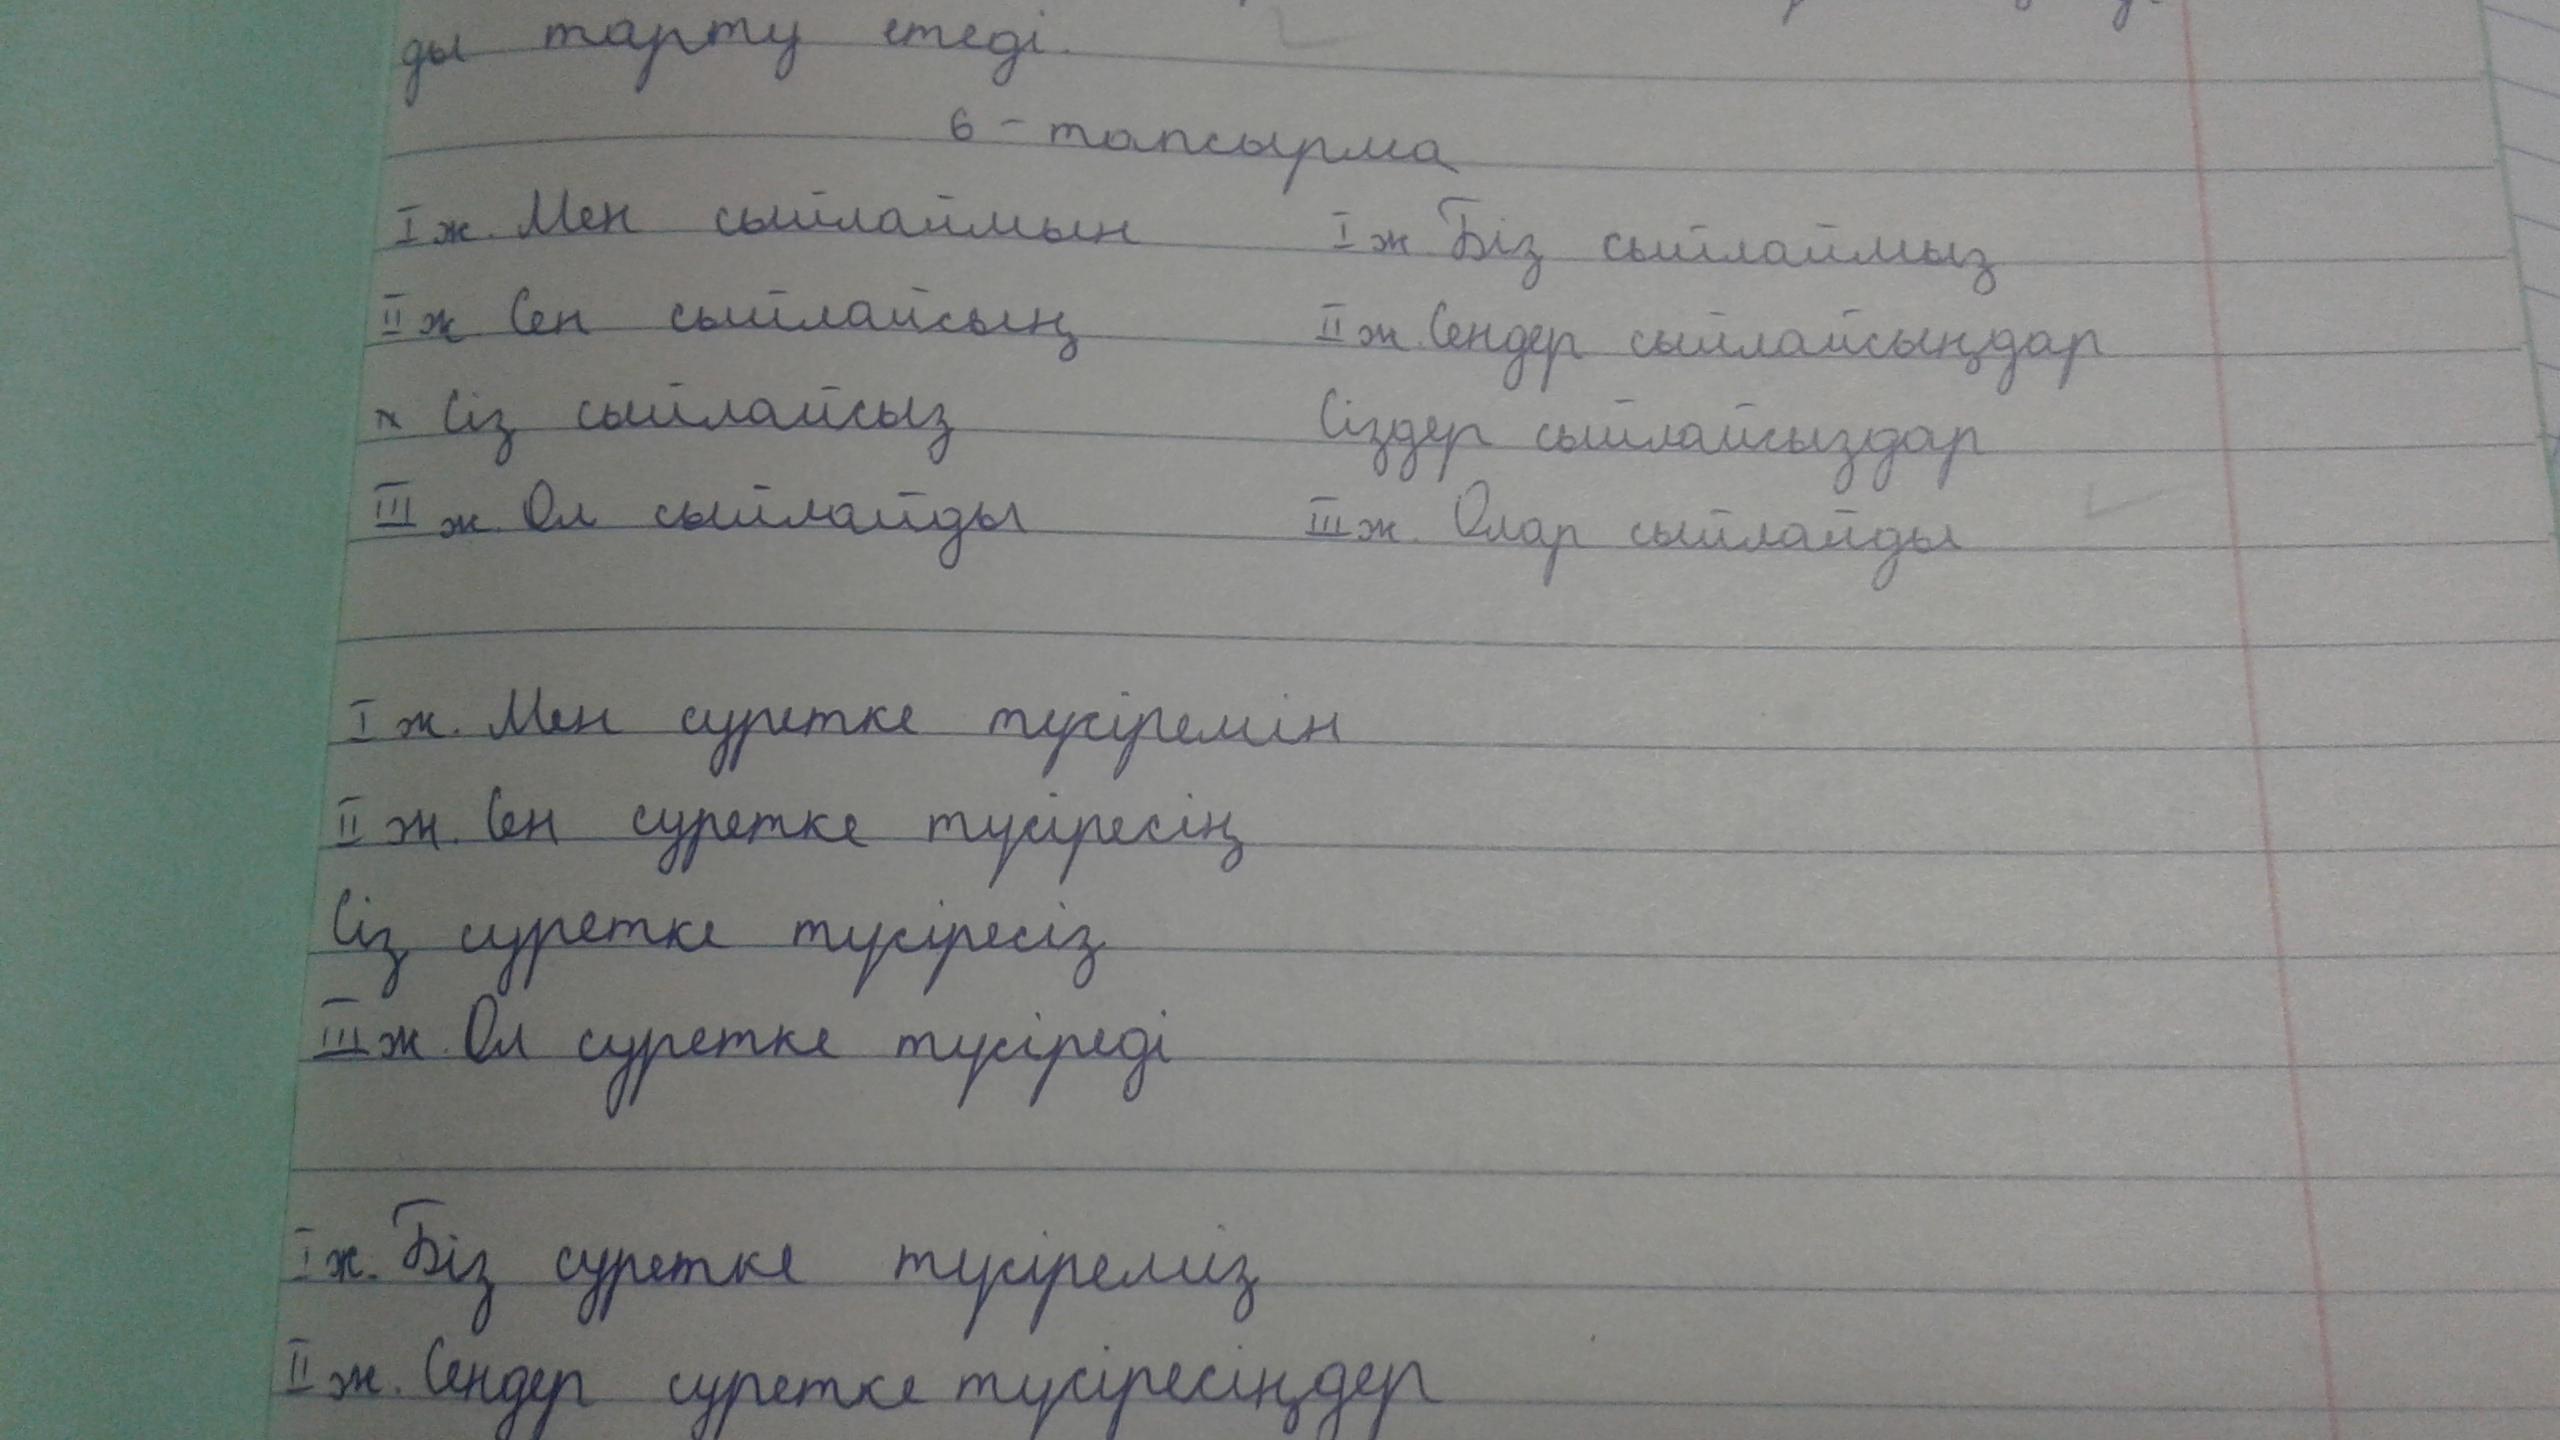 ды тарту етеді.
6 - тапсырма
I ж. Мен сыйлаймын I ж Біз сыйлаймыз
II ж Сен сыйлайсың II ж. Сендер сыйлайсыңдар
Сіз сыйлайсыз Сіздер сыйлайсыздар
III ж. Ол сыйлайды III ж. Олар сыйлайды
I ж. Мен суретке түсіремін
II ж. Сен суретке түсіресің
Сіз суретке түсіресіз
III ж. Ол суретке түсіреді
I ж. Біз суретке түсіремиз
II ж. Сендер суретке түсіресіңдер